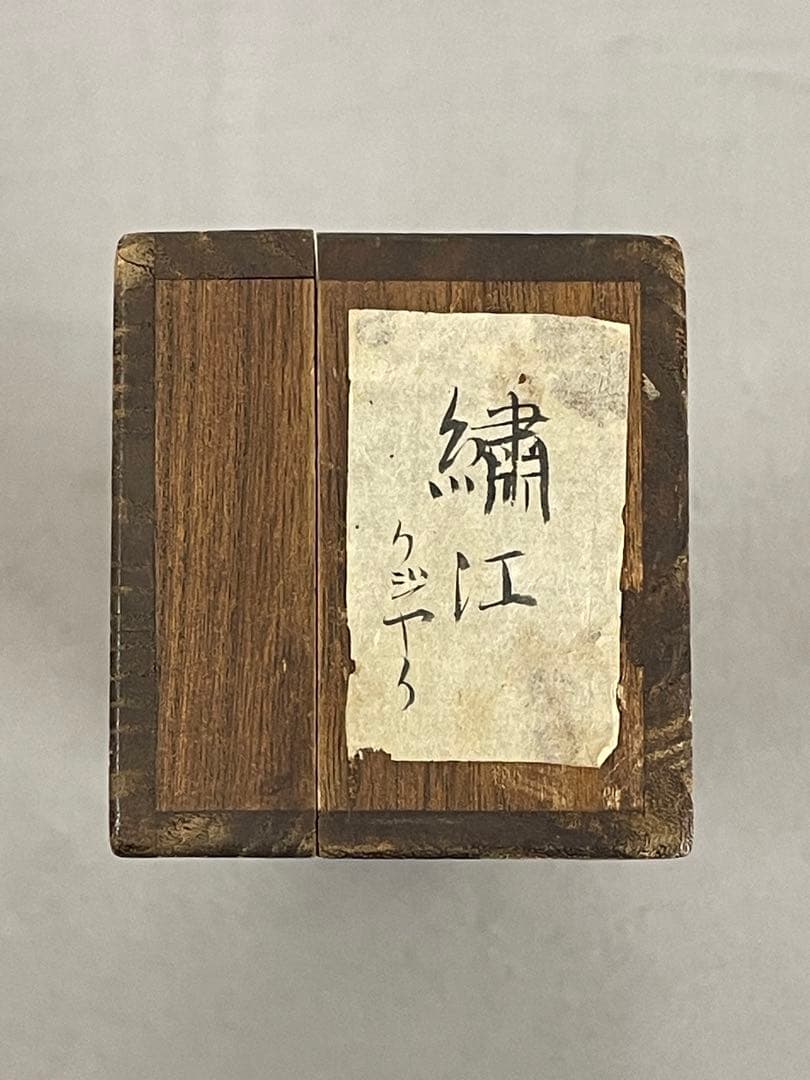 繡江
クジヤク